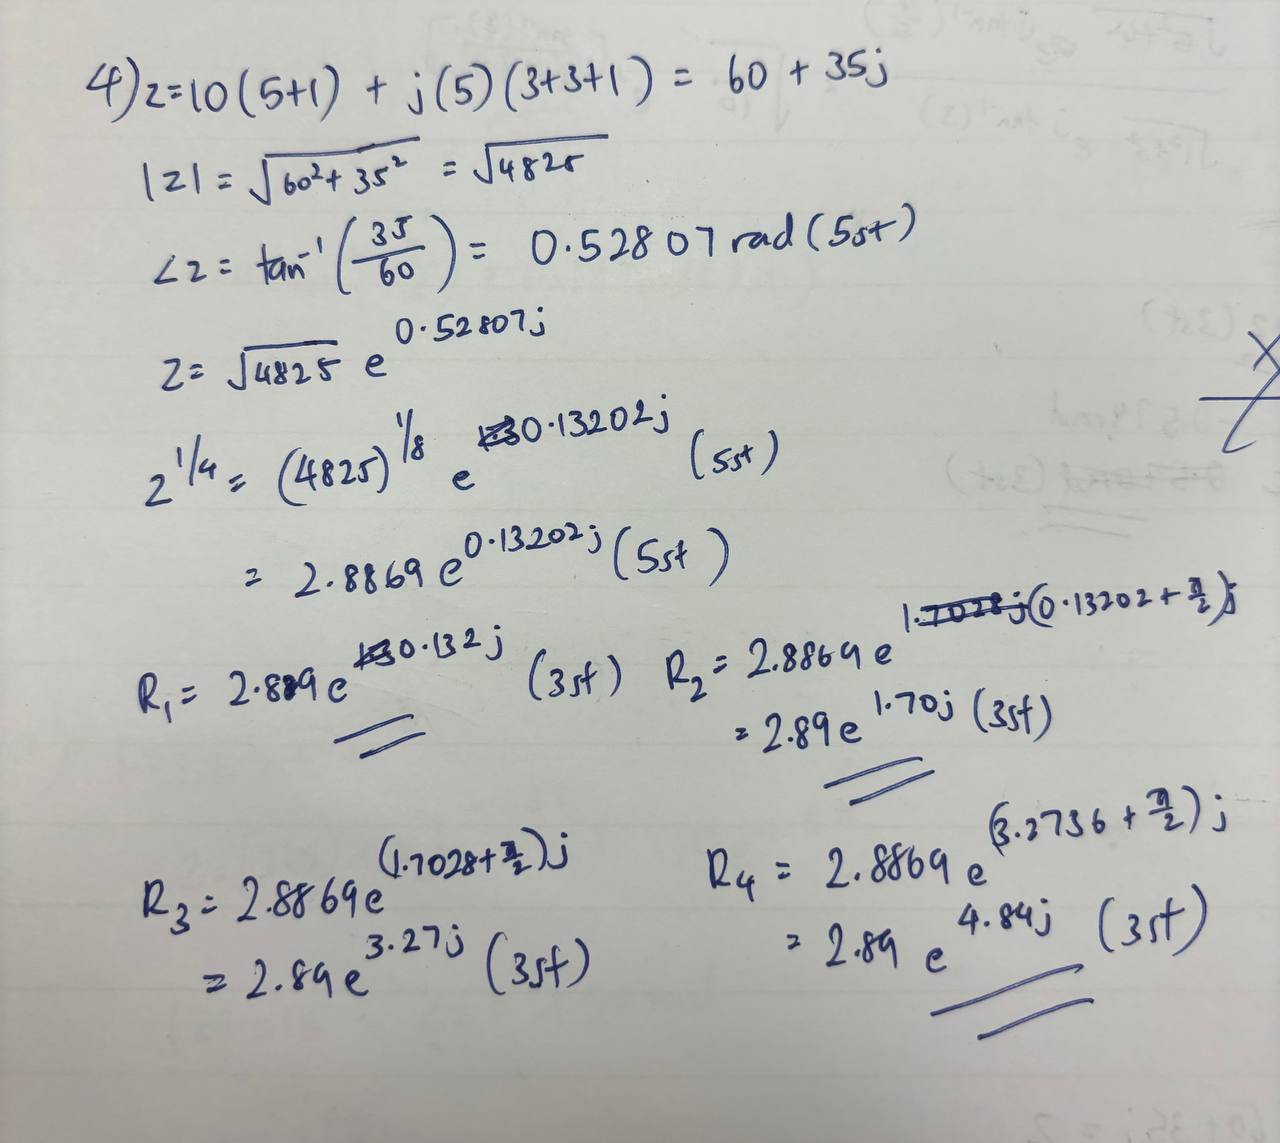 4) z=10(5+1) + j(5)(3+3+1) = 60 + 35j
|z| = √(60²+35²) = √4825
∠z = tan⁻¹(35/60) = 0.52807 rad (5sf)
z = √4825 e^(0.52807j)
z^(1/4) = (4825)^(1/8) e^(0.13202j) (5sf)
= 2.8869 e^(0.13202j) (5sf)
R₁ = 2.89 e^(0.132j) (3sf)
R₂ = 2.8869 e^((0.13202+π/2)j)
= 2.89 e^(1.70j) (3sf)
R₃ = 2.8869e^((1.7028+π/2)j)
= 2.89 e^(3.27j) (3sf)
R₄ = 2.8869 e^((3.2736+π/2)j)
= 2.89 e^(4.84j) (3sf)